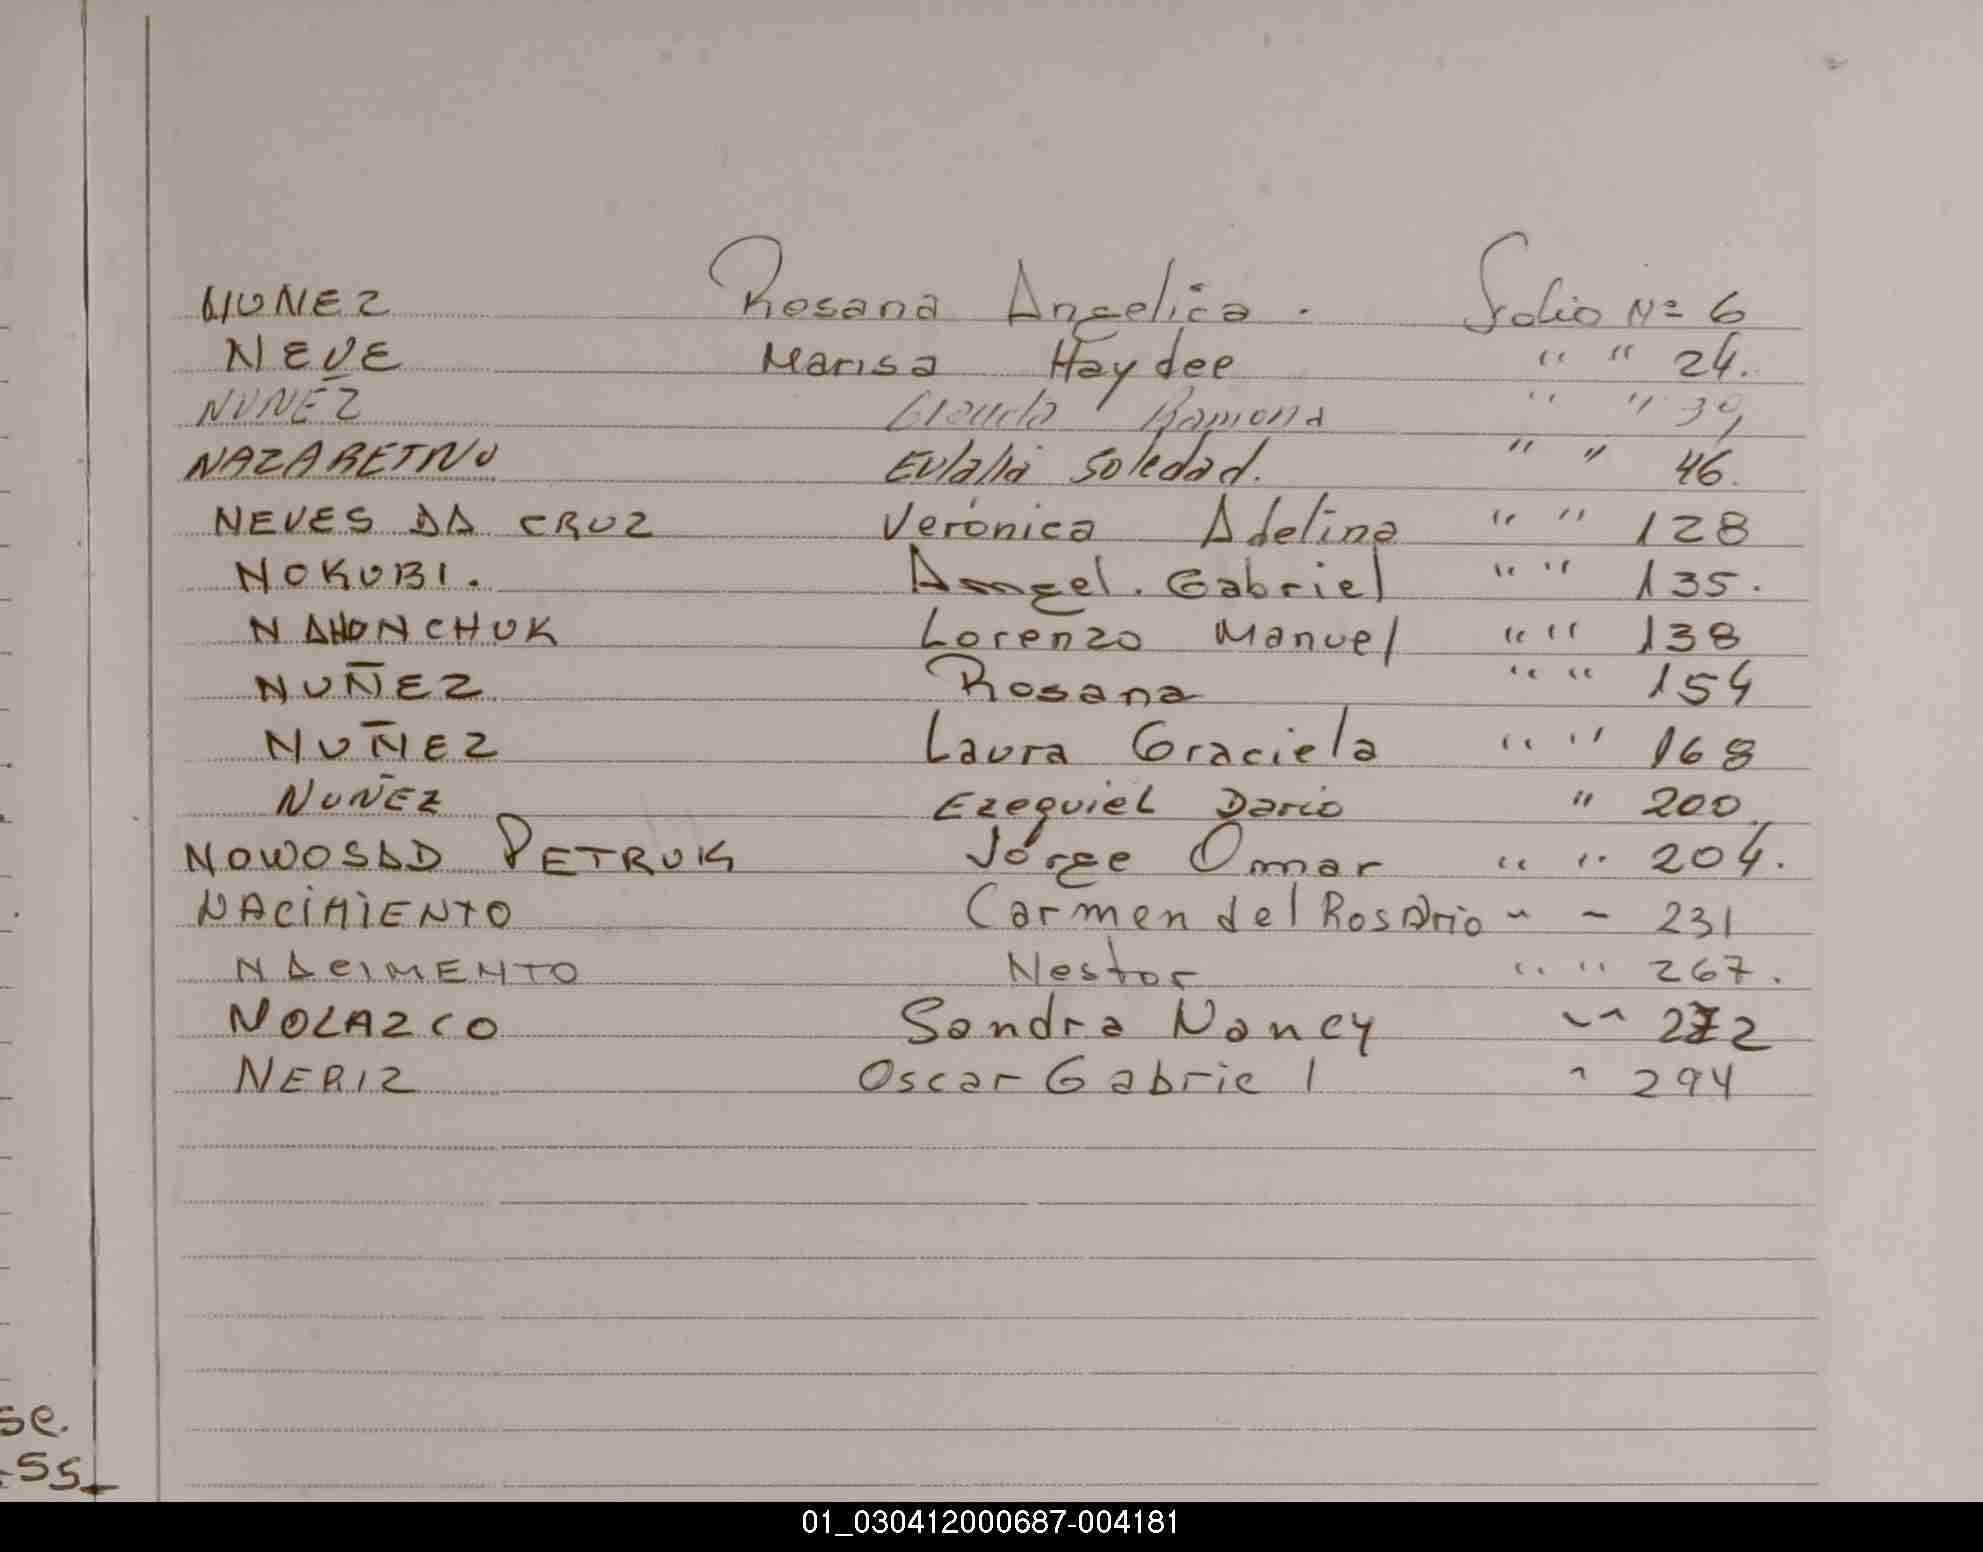 NUNEZ Rosana Angelica. Folio Nº 6
NEVE Marisa Haydee " " 24.
NUNEZ Ramona " " 39
NAZARETNO Eulalia Soledad. " " 46.
NEVES DA CRUZ Verónica Adelina " " 128
NOKUBI. Angel. Gabriel " " 135.
NAHONCHUK Lorenzo Manuel " " 138
NUÑEZ Rosana " " 154
NUÑEZ Laura Graciela " " 168
NUÑEZ Ezequiel Dario " 200.
NOWOSAD PETRUK Jorge Omar " " 204.
NACIMIENTO Carmen del Rosario " " 231
NACIMENTO Nestor " " 267.
NOLAZCO Sandra Nancy " " 272
NERIZ Oscar Gabriel " 294
se.
55
01_030412000687-004181